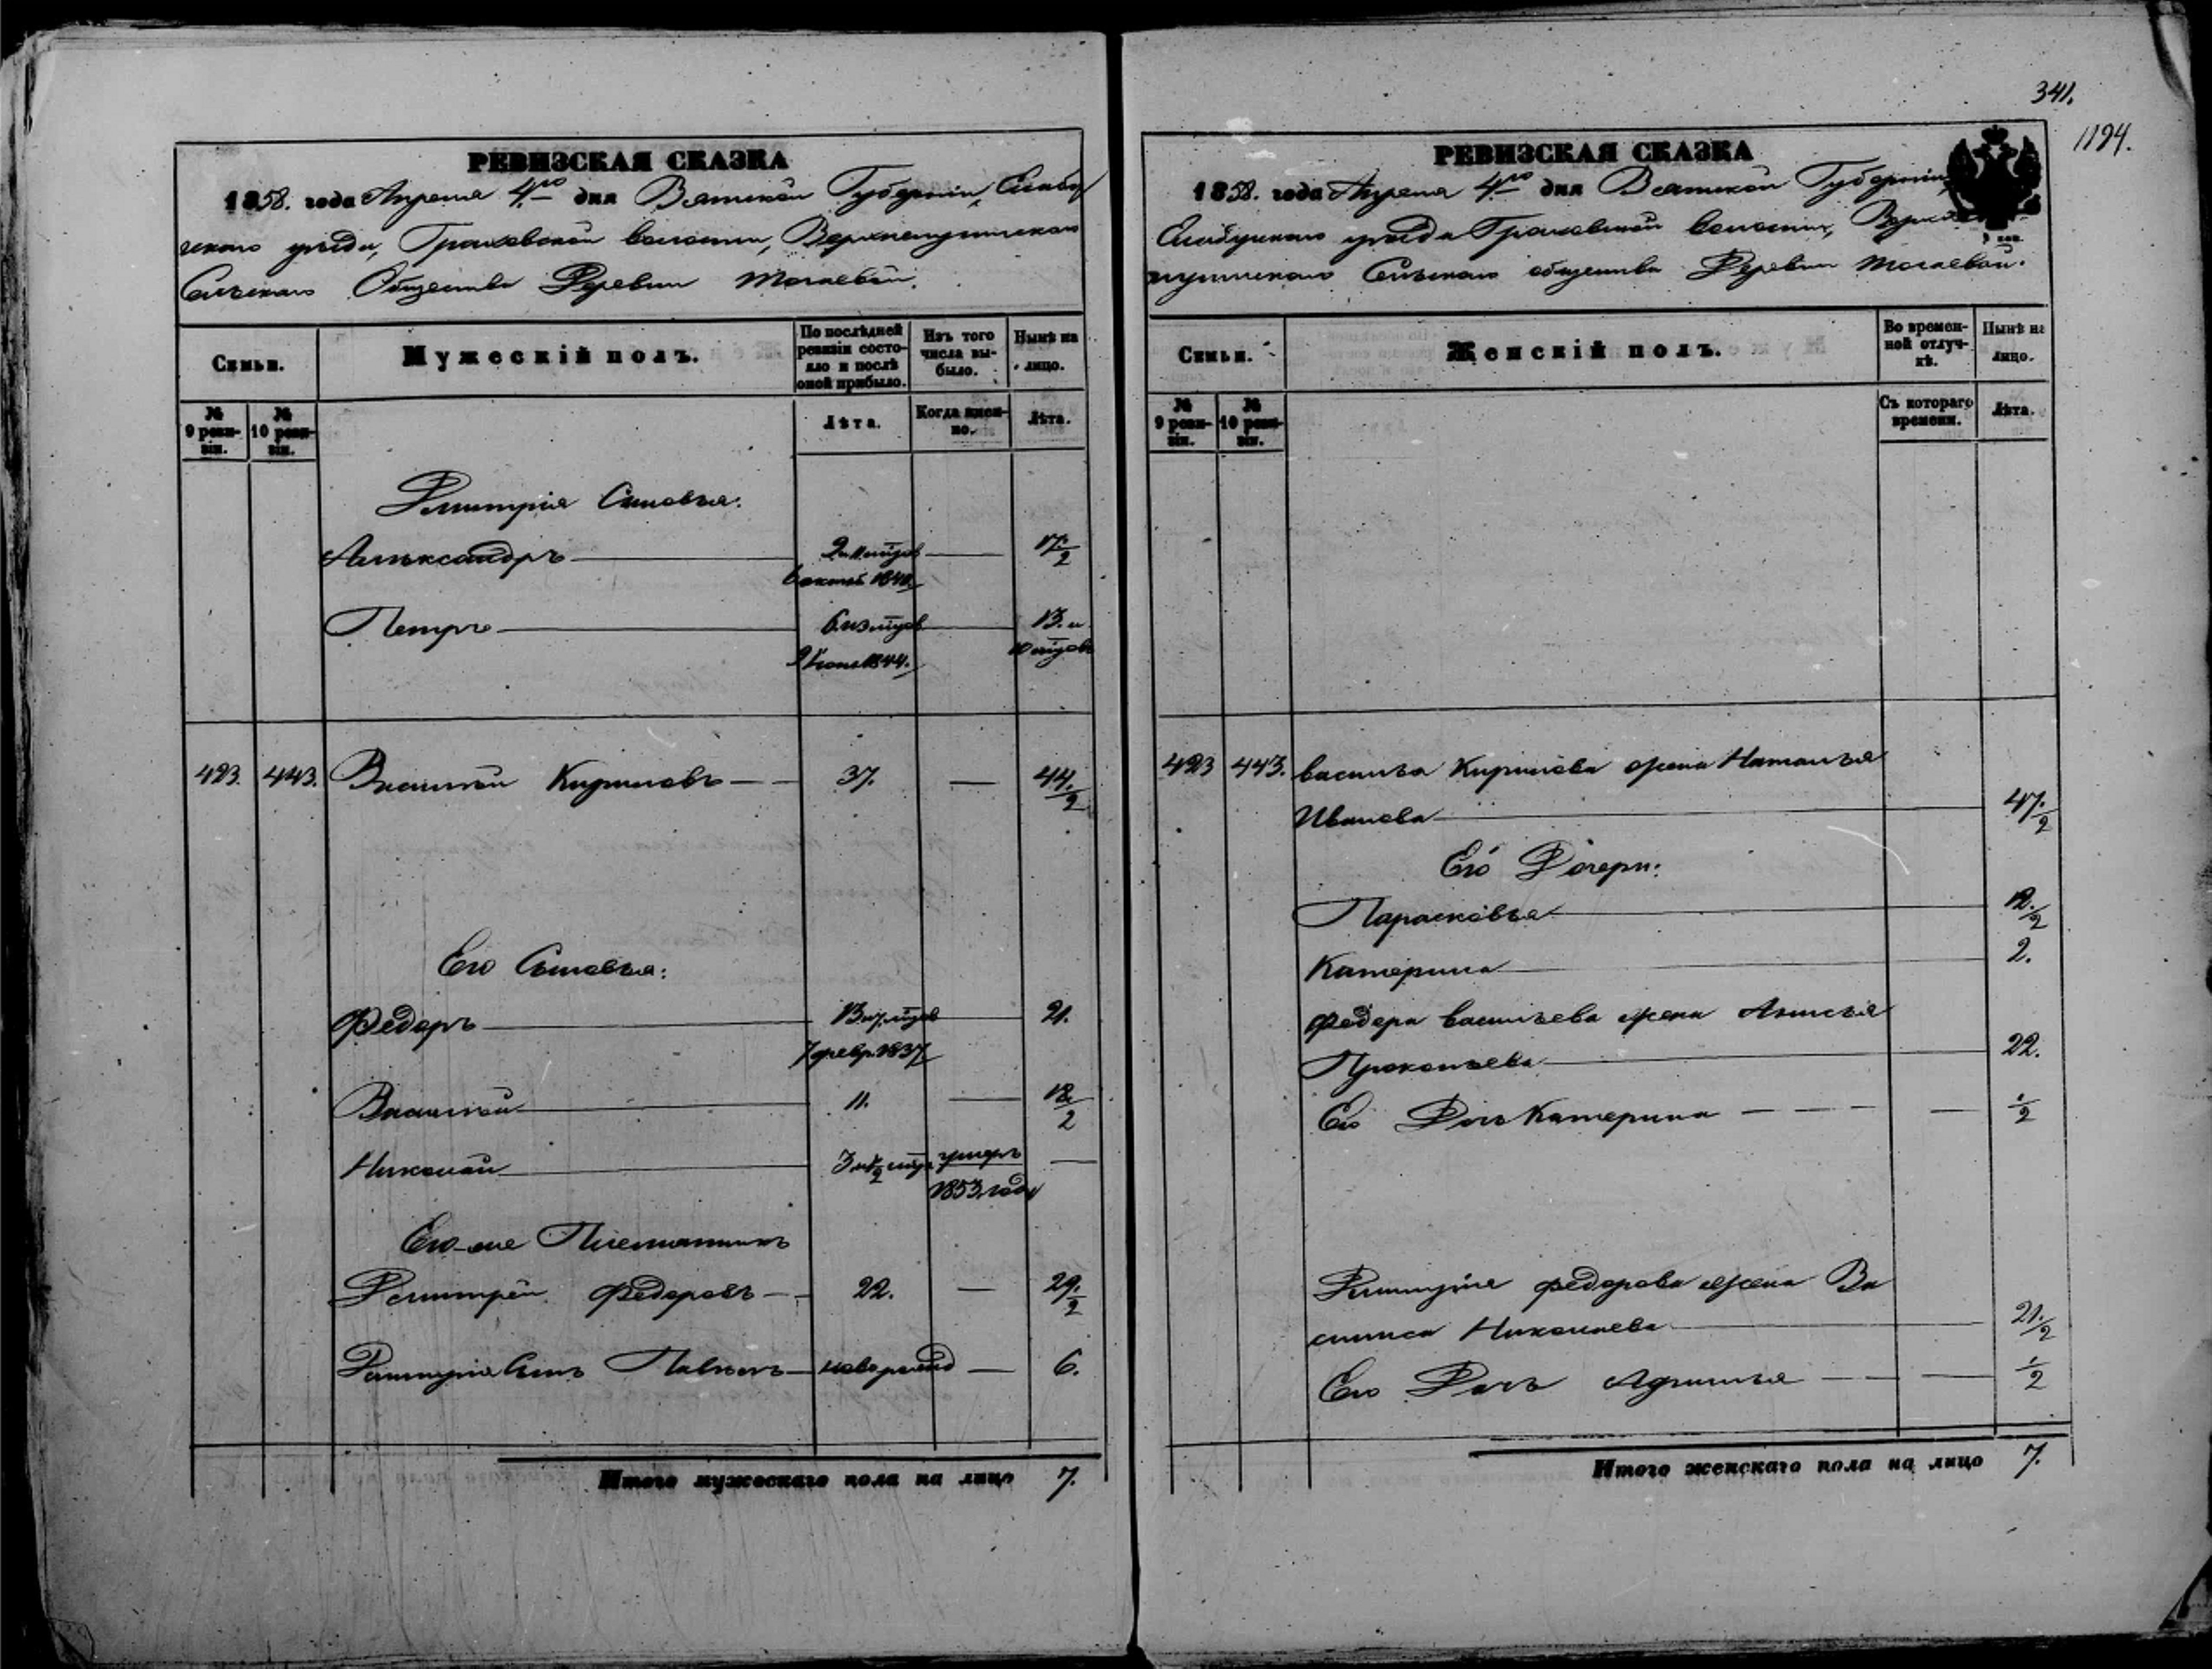 341.
1194.
РЕВИЗСКАЯ СКАЗКА
1858. года Апреля 4го дня Вятской Губерніи, Елабуж
скаго уѣзда, Граховской волости,
Сельскаго Общества Деревни
Семьи.
Мужескій полъ.
По послѣдней ревизіи состояло и послѣ оной прибыло.
Изъ того числа выбыло.
Нынѣ на лицо.
№ 9 ревизіи.
№ 10 ревизіи.
Лѣта.
Когда именно.
Лѣта.
Дмитрія Сыновья:
Александръ 17 1/2
1840.
Петръ 13. и
1844. 10 мѣсяцов
423. 443. Василей Кириловъ 37. — 44. 1/2
Его Сыновья:
Федоръ 13 и 7 мѣсяцов 21.
7 февр. 1837
Василей 11. — 18. 1/2
Николай умеръ —
1853 года
Его-же Племянникъ
Дмитрей Федоровъ 22. — 29. 1/2
Дмитрія Сынъ Павелъ новорожд — 6.
Итого мужескаго пола на лицо 7.
РЕВИЗСКАЯ СКАЗКА
1858. года Апреля 4го дня Вятской Губерніи,
Елабужскаго уѣзда Граховской волости,
Сельскаго общества Деревни
Семьи.
Женскій полъ.
Во временной отлучкѣ.
Нынѣ на лицо.
№ 9 ревизіи.
№ 10 ревизіи.
Съ котораго времени.
Лѣта.
423 443. Василья Кирилова жена Наталья
Иванова 47. 1/2
Его Дочери:
Парасковья 12. 1/2
Катерина 2.
Федора Васильева жена Анисья
Прокопьева 22.
Его Дочь Катерина — 1/2
Дмитрія Федорова жена Ва
силиса Николаева 21. 1/2
Его Дочь — 1/2
Итого женскаго пола на лицо 7.